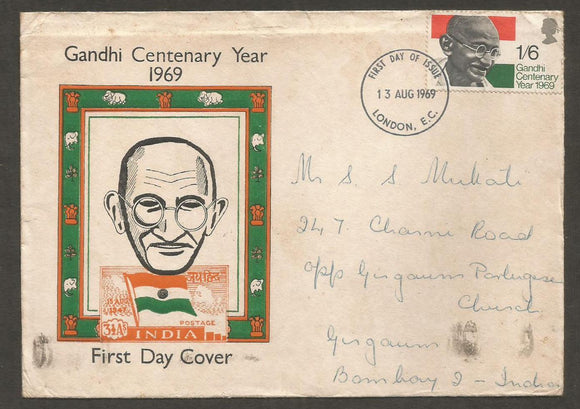 Gandhi Centenary Year
1969
FIRST DAY OF ISSUE
13 AUG 1969
LONDON, E.C.
1/6
Gandhi
Centenary
Year 1969
Mr S. S
247. Road
opp Girgaum Portuguese
Church
Girgaum
Bombay 2 - India
जय हिन्द
15 AUG
1947
3½ As
POSTAGE
INDIA
First Day Cover